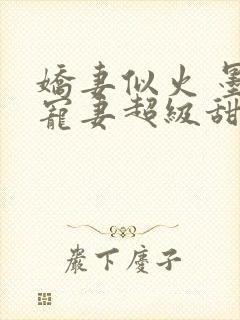 嬌妻似火 墨
寵妻超級甜
嚴下慶子